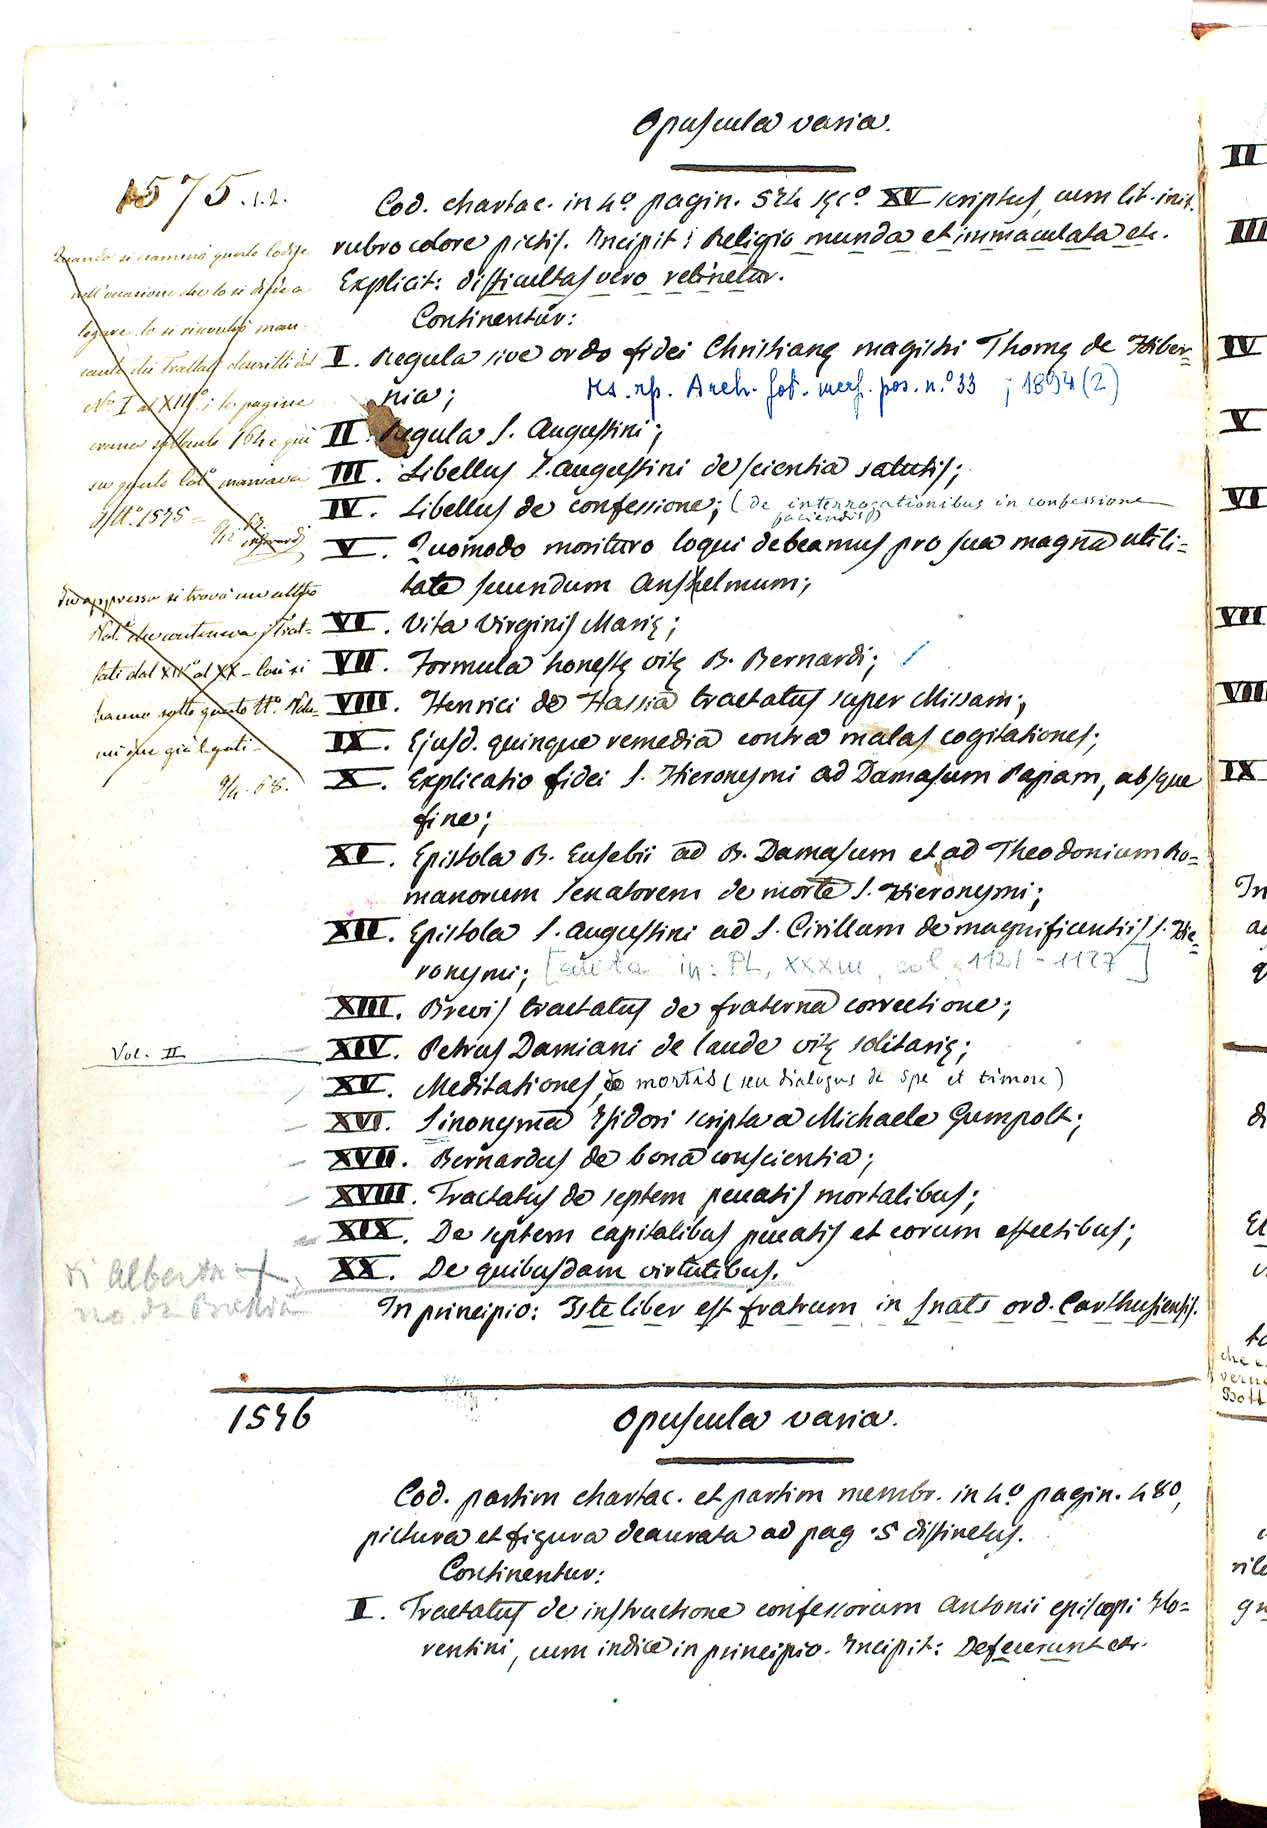 Opuscula varia.
1575.1.2.
Cod. chartac. in 4º pagin. 524 sęcº XV scriptus, cum lit. init.
rubro colore pictis. Incipit: Religio munda et immaculata etc.
Explicit: difficultas vero retinetur.
Continentur:
I. Regula sive ordo fidei Christianę magistri Thomę de Hiber=
nia;
Ms. rip. Arch. fot. neg. pos. n.º 33 ; 1894 (2)
II. Regula S. Augustini;
III. Libellus S. Augustini de scientia salutis;
IV. Libellus de confessione; (de interrogationibus in confessione
faciendis)
V. Quomodo morituro loqui debeamus pro sua magna utili=
tate secundum Anshelmum;
VI. Vita Virginis Marię;
VII. Formula honestę vitę B. Bernardi;
VIII. Henrici de Hassia tractatus super Missam;
IX. Ejusd. quinque remedia contra malas cogitationes;
X. Explicatio fidei S. Hieronymi ad Damasum Papam, absque
fine;
XI. Epistola B. Eusebii ad B. Damasum et ad Theodonium Ro=
manorum Senatorem de morte S. Hieronymi;
XII. Epistola S. Augustini ad S. Cirillum de magnificentiis S. Hie=
ronymi; [edita in: PL, XXXIII, col. 1121-1127]
XIII. Brevis tractatus de fraterna correctione;
Vol. II
XIV. Petrus Damiani de laude vitę solitarię;
XV. Meditationes de mortis (seu dialogus de spe et timore)
XVI. Sinonyma Isidori scripta a Michaele Gumpolt;
XVII. Bernardus de bona conscientia;
XVIII. Tractatus de septem peccatis mortalibus;
XIX. De septem capitalibus peccatis et eorum effectibus;
XX. De quibusdam virtutibus.
di Alberta
no da Brescia
In principio: Iste liber est fratrum in Snals ord. Carthusiensis.
Quando si esaminò questo Codice
nell'occasione che lo si diede a
legare lo si riscontrò man-
cante dei Trattati descritti dal
Nº I al XIIIº; le pagine
erano soltanto 164 e più
su questo Catº mancava
il Nº 1575=
In appresso si trovò un altro
che conteneva i Trat=
tati dal XIV al XX - Così si
hanno sotto questo Nº. Volu=
mi due già legati-
9/4.68.
1576
Opuscula varia.
Cod. partim chartac. et partim membr. in 4º pagin. 480,
pictura et figura deaurata ad pag. 5 distinctus.
Continentur:
I. Tractatus de instructione confessorum Antonii episcopi Flo=
rentini, cum indice in principio. Incipit: Defecerunt etc.
II
III
IV
V
VI
VII
VIII
IX